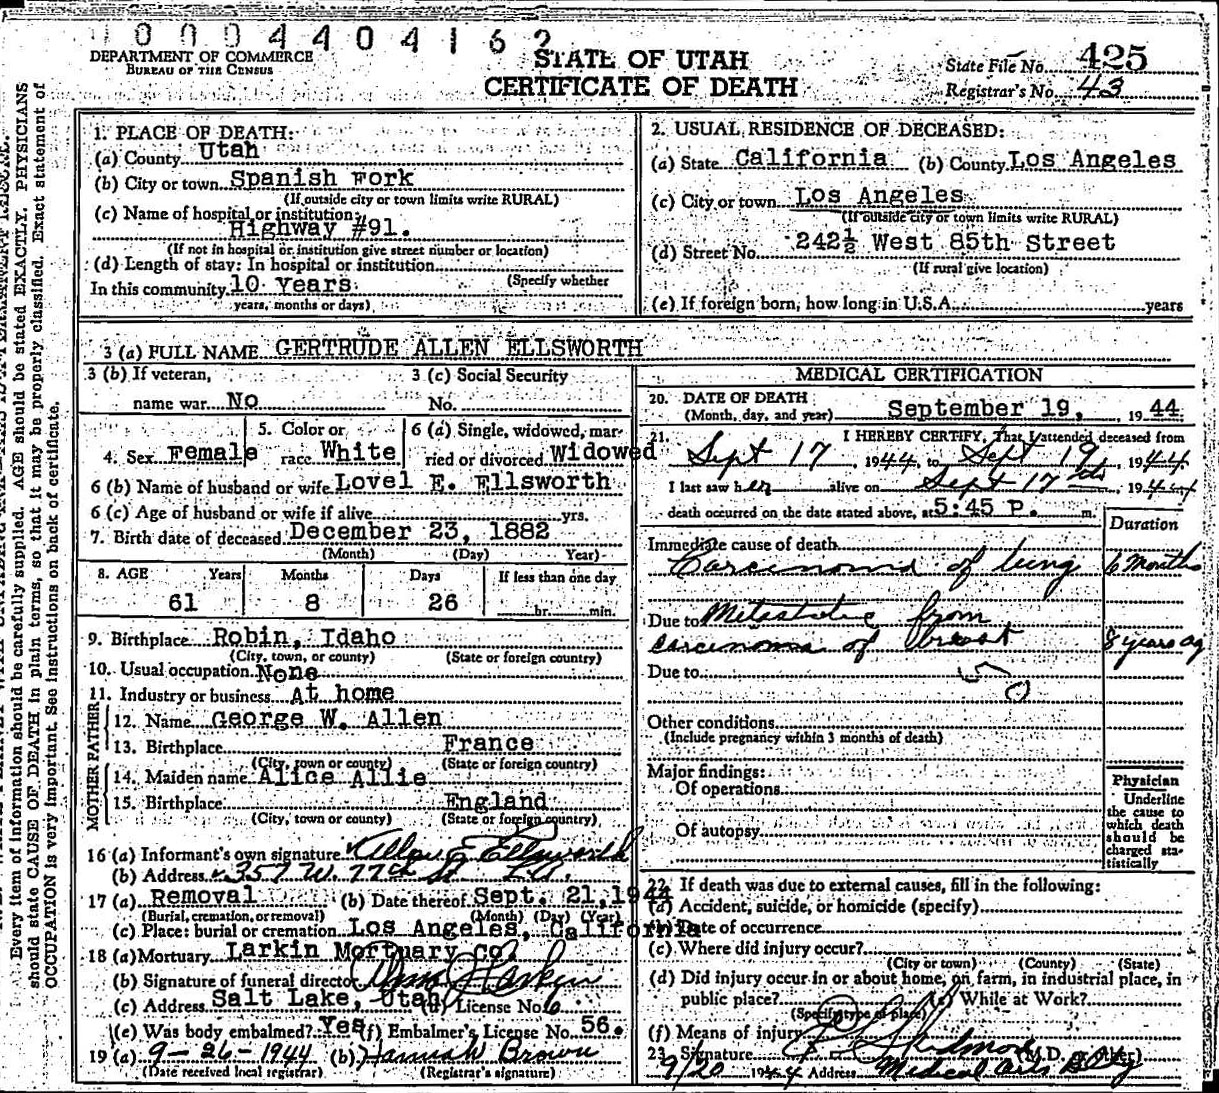 0004404162
DEPARTMENT OF COMMERCE
BUREAU OF THE CENSUS
STATE OF UTAH
CERTIFICATE OF DEATH
State File No. 425
Registrar's No. 43
Every item of information should be carefully supplied. AGE should be stated EXACTLY. PHYSICIANS
should state CAUSE OF DEATH in plain terms, so that it may be properly classified. Exact statement of
OCCUPATION is very important. See instructions on back of certificate.
1. PLACE OF DEATH:
(a) County Utah
(b) City or town Spanish Fork
(If outside city or town limits write RURAL)
(c) Name of hospital or institution:
Highway #91.
(If not in hospital or institution give street number or location)
(d) Length of stay: In hospital or institution
(Specify whether
In this community 10 Years
years, months or days)
2. USUAL RESIDENCE OF DECEASED:
(a) State California (b) County Los Angeles
(c) City or town Los Angeles
(If outside city or town limits write RURAL)
(d) Street No. 242½ West 85th Street
(If rural give location)
(e) If foreign born, how long in U.S.A. years
3 (a) FULL NAME GERTRUDE ALLEN ELLSWORTH
3 (b) If veteran,
name war No
3 (c) Social Security
No.
4. Sex Female
5. Color or
race White
6 (a) Single, widowed, mar-
ried or divorced Widowed
6 (b) Name of husband or wife Lovel E. Ellsworth
6 (c) Age of husband or wife if alive yrs.
7. Birth date of deceased December 23, 1882
(Month) (Day) Year)
8. AGE Years Months Days If less than one day
61 8 26 hr. min.
9. Birthplace Robin, Idaho
(City, town, or county) (State or foreign country)
10. Usual occupation None
11. Industry or business At home
FATHER
12. Name George W. Allen
13. Birthplace France
(City, town or county) (State or foreign country)
MOTHER
14. Maiden name Alice Allie
15. Birthplace England
(City, town, or county) (State or foreign country)
16 (a) Informant's own signature Ellsworth
(b) Address 357 W. 77th St. L.A.
17 (a) Removal (b) Date thereof Sept. 21, 1944
(Burial, cremation, or removal) (Month) (Day) (Year)
(c) Place: burial or cremation Los Angeles, California
18 (a) Mortuary Larkin Mortuary Co.
(b) Signature of funeral director Larkin
(c) Address Salt Lake, Utah (d) License No. 6
(e) Was body embalmed? Yes (f) Embalmer's License No. 56.
19 (a) 9-26-1944 (b) Hanna W Brown
(Date received local registrar) (Registrar's signature)
MEDICAL CERTIFICATION
20. DATE OF DEATH
(Month, day, and year) September 19, 1944
21. I HEREBY CERTIFY, That I attended deceased from
Sept 17, 1944, to Sept 19, 1944
I last saw her alive on Sept 17, 1944
death occurred on the date stated above, at 5:45 P. m.
Duration
Immediate cause of death
Carcinoma of lung 6 Months
Due to Metastatic from
carcinoma of breast 8 years ag
Due to
50
Other conditions
(Include pregnancy within 3 months of death)
Major findings:
Of operations
Of autopsy
Physician
Underline
the cause to
which death
should be
charged sta-
tistically
22. If death was due to external causes, fill in the following:
(a) Accident, suicide, or homicide (specify)
(b) Date of occurrence
(c) Where did injury occur?
(City or town) (County) (State)
(d) Did injury occur in or about home, on farm, in industrial place, in
public place? (e) While at Work?
(Specify type of place)
(f) Means of injury
23. Signature Skidmore (M.D. or other)
9/20 1944 Address Medical Arts Bldg